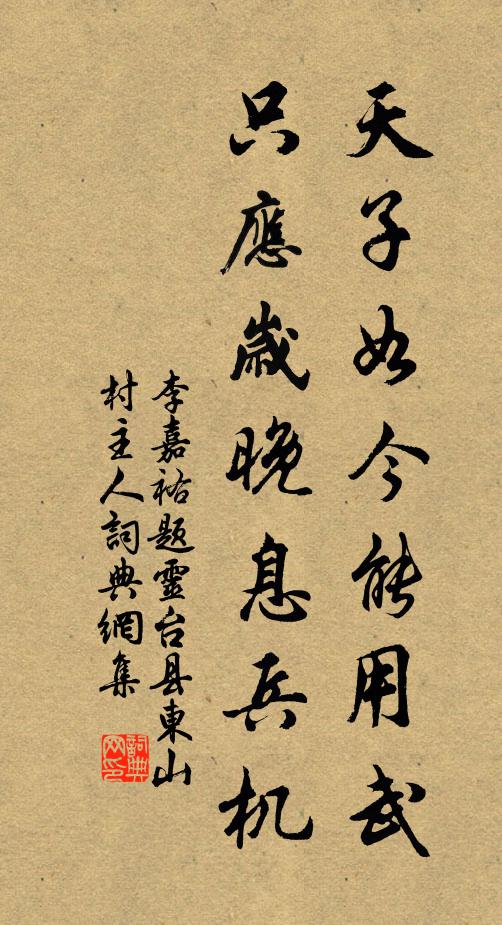 天子如今能用武
只應歲晚息兵机
李嘉祐題靈台县東山
村主人詞典網集
詞典网印